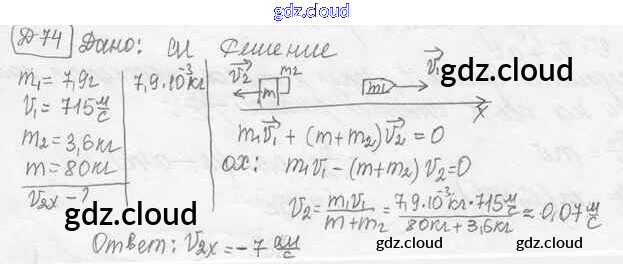 gdz.cloud
Д74 Дано: СИ Решение
m₁ = 7,9г 7,9·10⁻³кг
V₁ = 715 м/с
m₂ = 3,6кг
m = 80кг
V₂ₓ - ?
V₂ m m₂ m₁ V₁
gdz.cloud gdz.cloud
X
m₁V₁ + (m+m₂)V₂ = 0
ох: m₁V₁ - (m+m₂)V₂ = 0
V₂ = m₁V₁/(m+m₂) = 7,9·10⁻³кг·715 м/с/(80кг+3,6кг) ≈ 0,07 м/с
gdz.cloud
Ответ: V₂ₓ = -7 см/с
gdz.cloud gdz.cloud